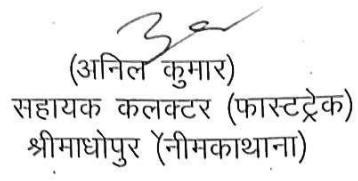 (अनिल कुमार)
सहायक कलक्टर (फास्टट्रेक)
श्रीमाधोपुर (नीमकाथाना)